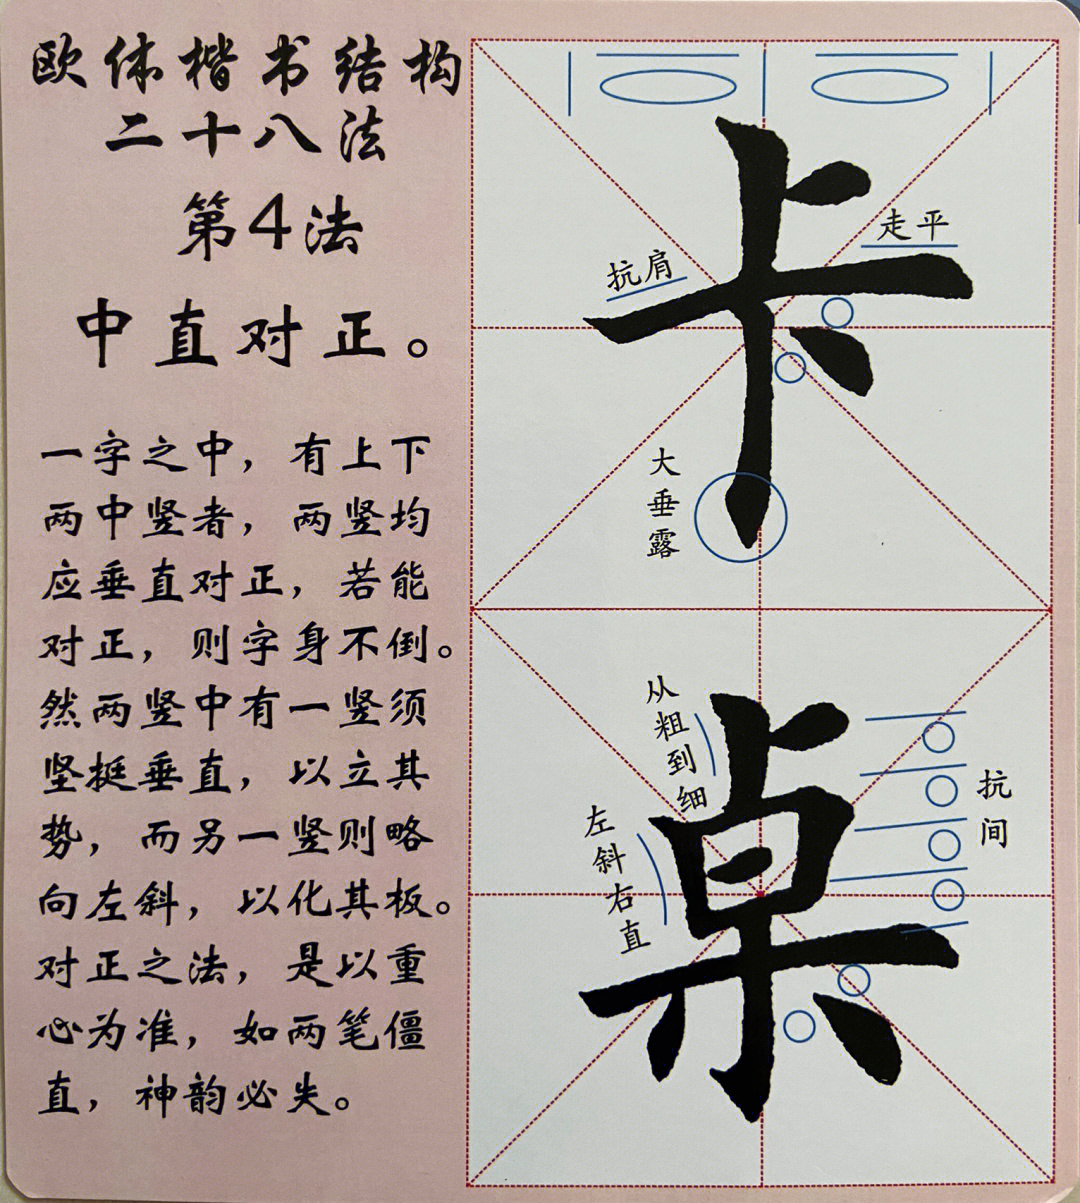 欧体楷书结构
二十八法
第4法
中直对正。
一字之中，有上下
两中竖者，两竖均
应垂直对正，若能
对正，则字身不倒。
然两竖中有一竖须
坚挺垂直，以立其
势，而另一竖则略
向左斜，以化其板。
对正之法，是以重
心为准，如两笔僵
直，神韵必失。
卡
走平
抗肩
大垂露
桌
从粗到细
左斜右直
抗间